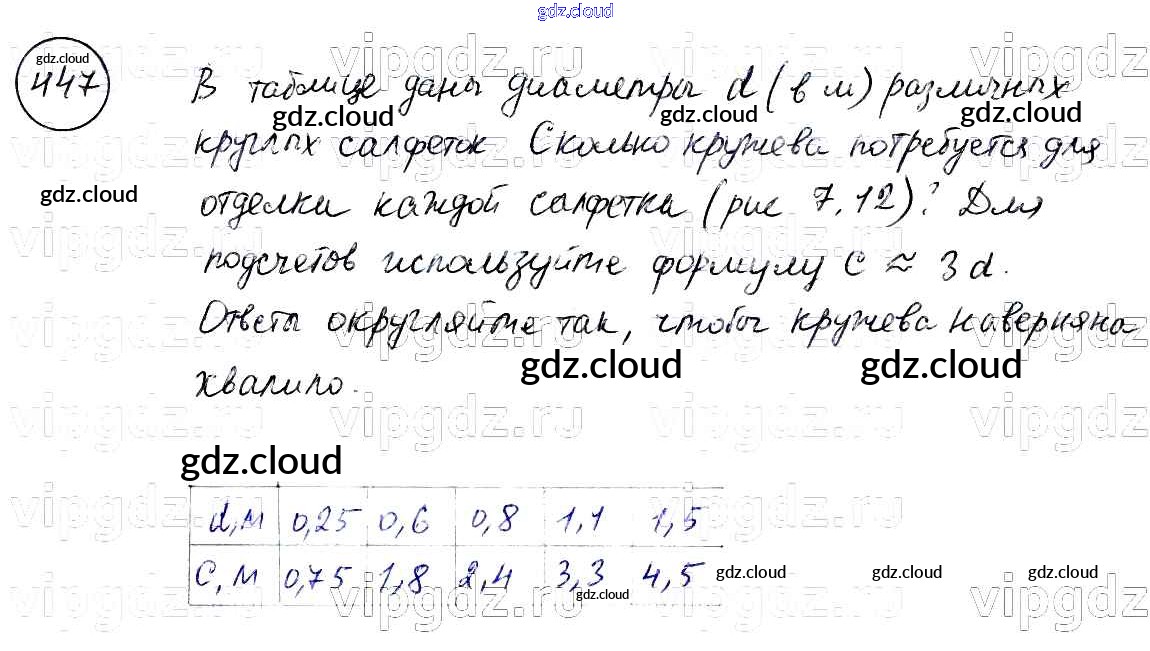 gdz.cloud
gdz.cloud
447
В таблице даны диаметры d (в м) различных
gdz.cloud gdz.cloud gdz.cloud
круглых салфеток Сколько кружева потребуется для
gdz.cloud
отделки каждой салфетка (рис 7.12)? Для
подсчетов используйте формулу C ≈ 3d.
Ответы округляйте так, чтобы кружева наверняка
gdz.cloud gdz.cloud
хватило.
gdz.cloud
d,м 0,25 0,6 0,8 1,1 1,5
C,м 0,75 1,8 2,4 3,3 4,5
gdz.cloud gdz.cloud gdz.cloud
gdz.cloud
vipgdz.ru